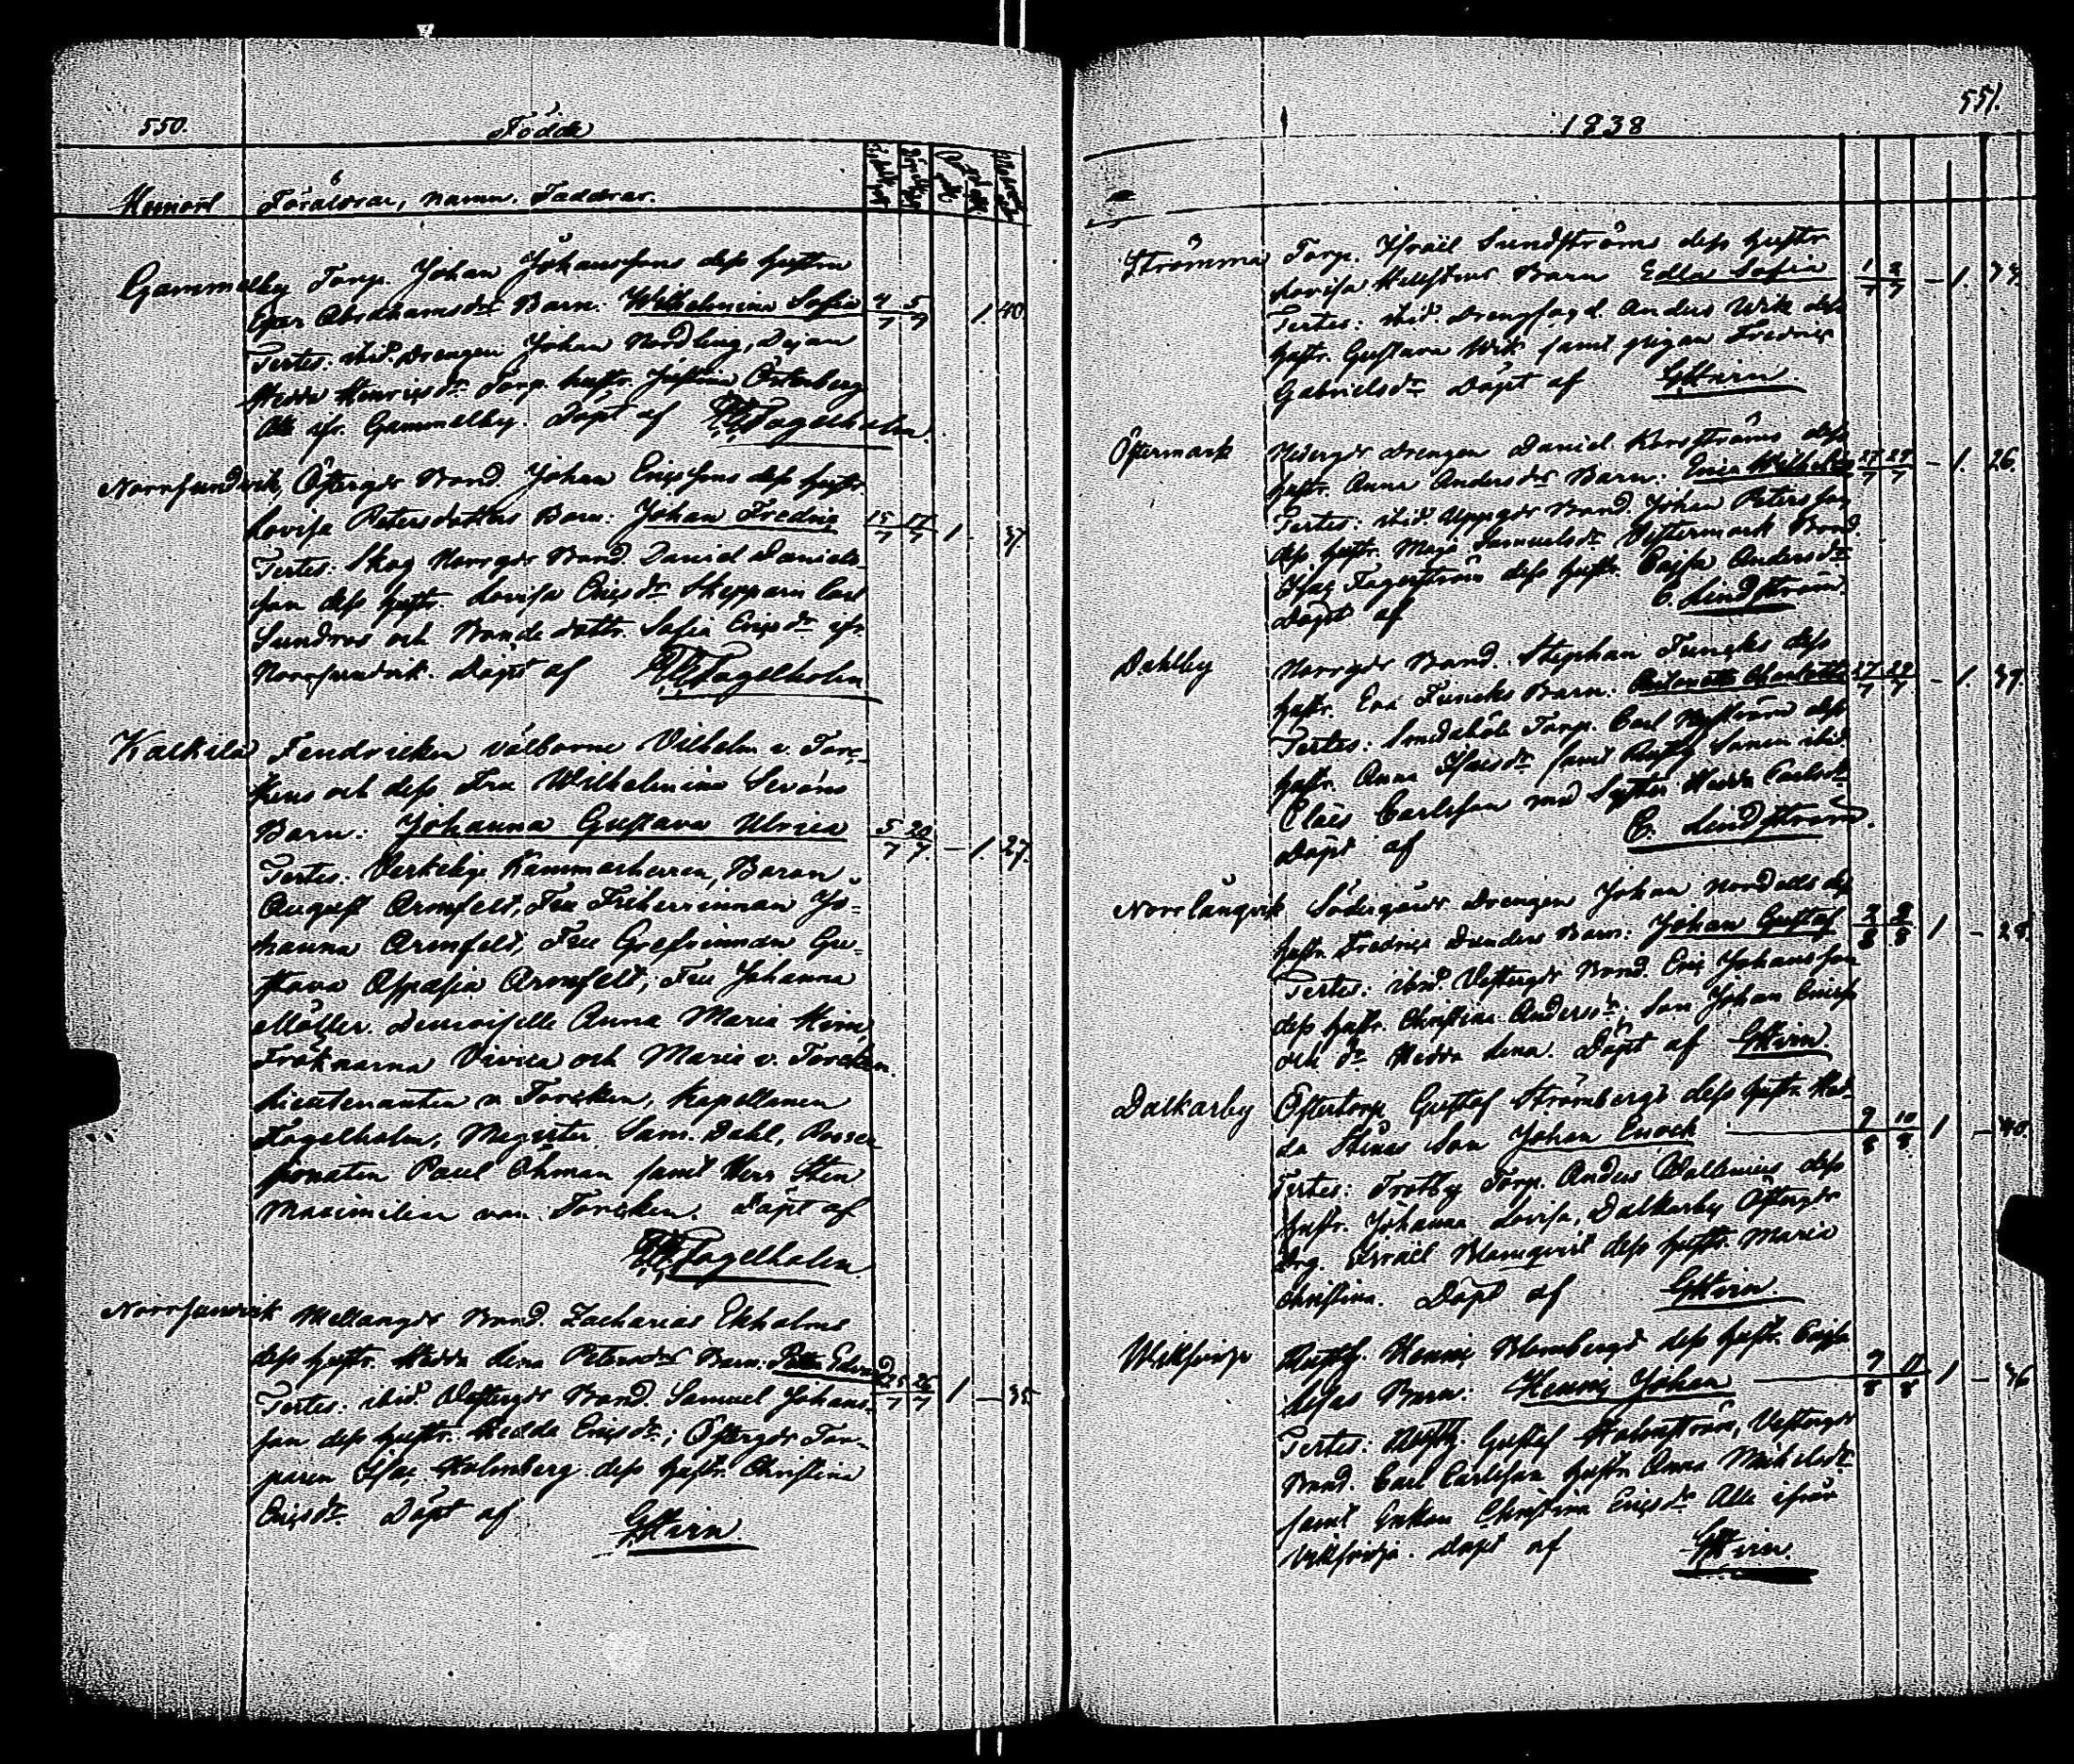 550.
Födde
Hemort
Föräldrar, namn. Faddrar.
Gammelby Torp. Johan Johanssons dess hustru
Abrahamsdr Barn: Wilhelmina Sofia 4/7 5/7 1. 40.
Testes: ibid. Drengen Johan Nordling, Pigan
Hedda Henricsdr Torp. hustr. Justina Österberg
Alla ifr. Gammelby. Döpt af Fagelholm.
Norrsundvik, Östergds Bond. Johan Ericssons dess hustr.
Lovisa Petersdotters Barn: Johan Fredric 15/7 17/7 1. 37
Testes: Skog Norrgds Bond. Daniel Daniels
son dess hustr. Lovisa Ericsdr Skepparn Carl
Sundros och Bonde dottr. Sofia Ericsdr ifr.
Norrsundvik. Döpt af Fagelholm
Kalkila Fendricken välborne Vilhelm v. Torc-
kens och dess Fru Wilhelmina Sevóns
Barn: Johanna Gustava Ulrica 5/7 20/7. – 1. 27.
Testes: Verkelige Kammarherren, Baron
August Armfelt, Fru Friherrinnan Jo-
hanna Armfelt, Fru Grefvinnan Gu-
stava Aspasia Armfelt, Fru Johanna
Möller. Demoiselle Anna Maria
Fröknarna Vivica och Maria v. Torcken.
Lieutenanten v. Torcken, Kapellanen
Fagelholm, Magister Sam. Dahl, Posses-
sionaten Paul Öhman samt Herr Sten
Maximilian von Torcken. Döpt af
Fagelholm.
Norrsundvik Mellangds Bond. Zacharias Ekholms
dess hustr. Hedda Lina Petersdrs Barn: 25/7 26/7 1 – 35
Testes: ibid. Vestergds Bond. Samuel Johans-
son dess hustr. Hedda Ericsdr; Östergds Tor-
paren Isac Holmberg dess hustr. Christina
Ericsdr Döpt af GHirn
551.
1838
Strömma Torp. Israël Sundströms dess hustr
Lovisa Barn Edla Sofia 1/7 2/7 – 1.
Testes: ibid. Anders Wik dess
hustr. Gustava Wik samt pigan Fredrica
Gabrielsdr Döpt af GHirn.
Östermark Nedergds Drengen Daniel Korsströms dess
hustr. Anna Andersdrs Barn: Erica Wilhelmina 27/7 27/7 – 1. 26.
Testes: ibid. Uppgds Bond. Johan Petersson
dess hustr. Maja Samuelsdr Vestermark Bond.
Isac Fagerström dess hustr. Cajsa Andersdr
Döpt af C. Lindström.
Dahlby Norrgds Bond. Stephan Funcks dess
hustr. Eva Funcks Barn: Charlotta 27/7 29/7 – 1. 39.
Testes: Torp. Carl Nyström dess
hustr. Anna samt ibid.
Claës Carlsson med Syster Hedda Carlsdr
Döpt af C. Lindström.
Norrlångvik Södergårds Drengen Johan Nordells dess
hustr. Fredrica Barn: Johan Gustaf 2/8 2/8 1 – 28.
Testes: ibid. Vestergds Bond. Eric Johansson
dess hustr. Christina Andersdr; Son Johan Ericss
och dr Hedda Lena. Döpt af GHirn
Dalkarby Östertorp Gustaf Strömbergs dess hustr. Hed-
da Stinas Son Johan Enock 9/8 10/8. 1 – 40.
Testes: Trotby Torp. Anders Wallenius dess
hustr. Johanna Lovisa, Dalkarby Östergds
Drg. Israël Blomqvist dess hustr. Maria
Christina. Döpt af GHirn.
Henric Blombergs dess hustr. Cajsa
Lisas Barn: Henric Johan 9/8 11/8 1 –
Testes: Gustaf Holmström, Vestergds
Bond. Carl Carlsson hustr. Anna Mickelsdr
samt Enkan Christina Ericsdr Alla ifrån
Döpt af GHirn.